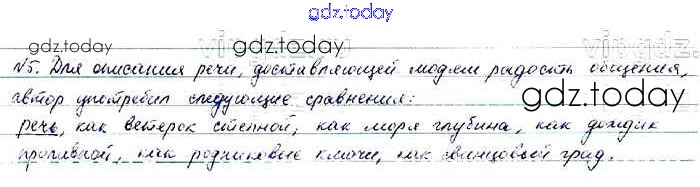 gdz.today
gdz.today
gdz.today
№5. Для описания речи, доставляющей людям радость общения,
автор употребил следующие сравнения:
gdz.today
речь, как ветерок степной, как моря глубина, как дождик
проливной, как родниковые ключи, как свинцовый град.